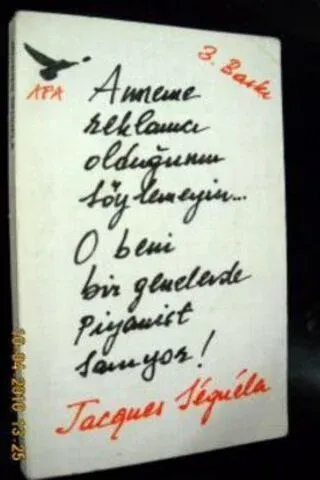 AFA
3. Baskı
Anneme
reklamcı
olduğumu
söylemeyin...
O beni
bir genelevde
Piyanist
sanıyor!
Jacques Séguéla
10-04-2010 13:25